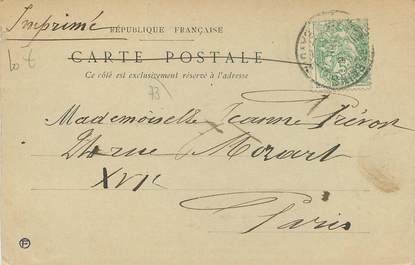 Imprimé
RÉPUBLIQUE FRANÇAISE
CARTE POSTALE
Ce côté est exclusivement réservé à l'adresse
Mademoiselle Jeanne Prévost
rue Mozart
XVIe
Paris